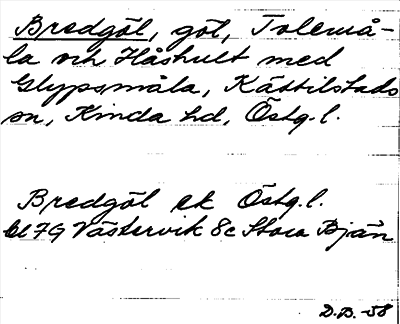 Bredgöl, göl, Tolemå-
la och Håshult med
Glypsmåla, Kättilstads
sn, Kinda hd, Östg.l.
Bredgöl ek Östg.l.
bl 7G Västervik 8c Stora Bjän
D.B. -58